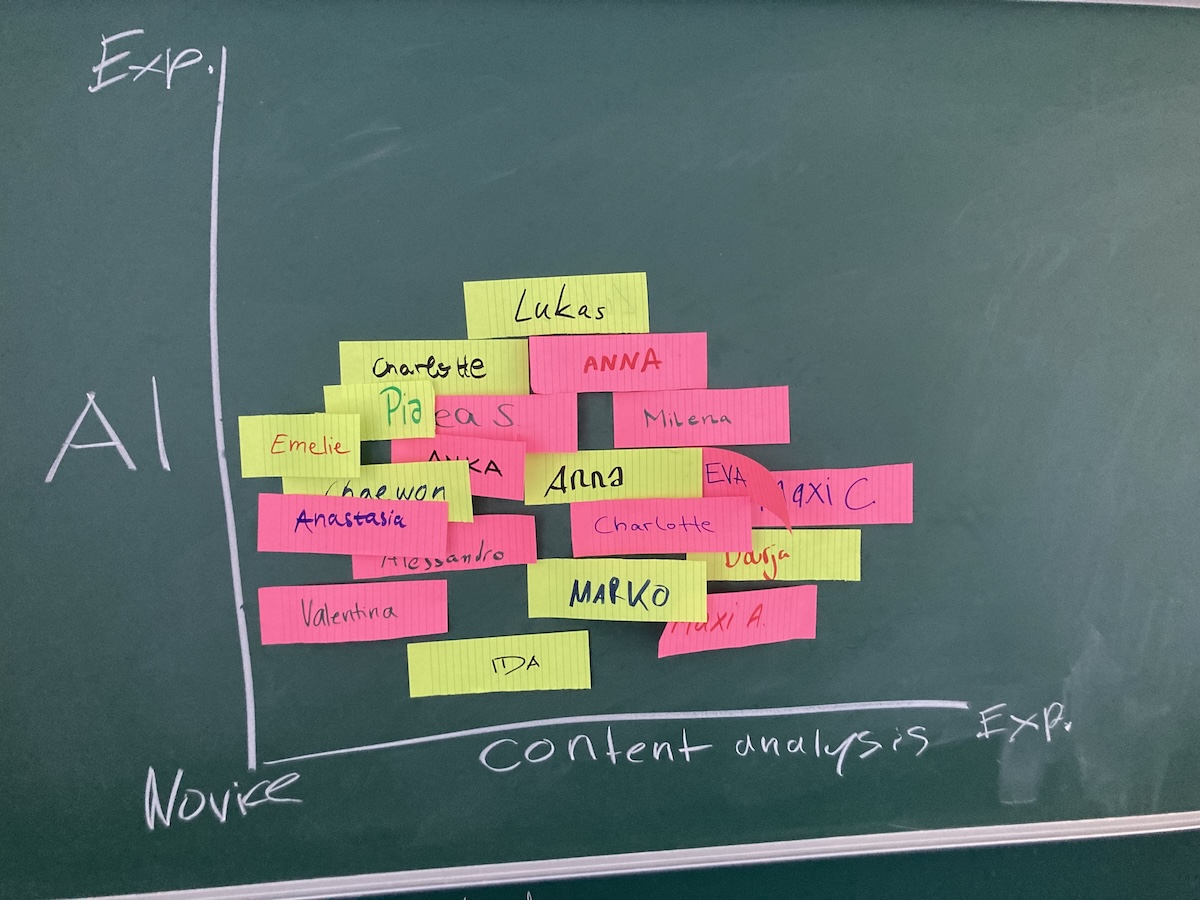 Exp.
Lukas
Charlotte
ANNA
Pia
ea S.
Milena
AI
Emelie
ANKA
Anna
EVA
axi C.
Chaewon
Anastasia
Charlotte
Alessandro
Darja
MARKO
Valentina
axi A.
IDA
content analysis
Exp.
Novice